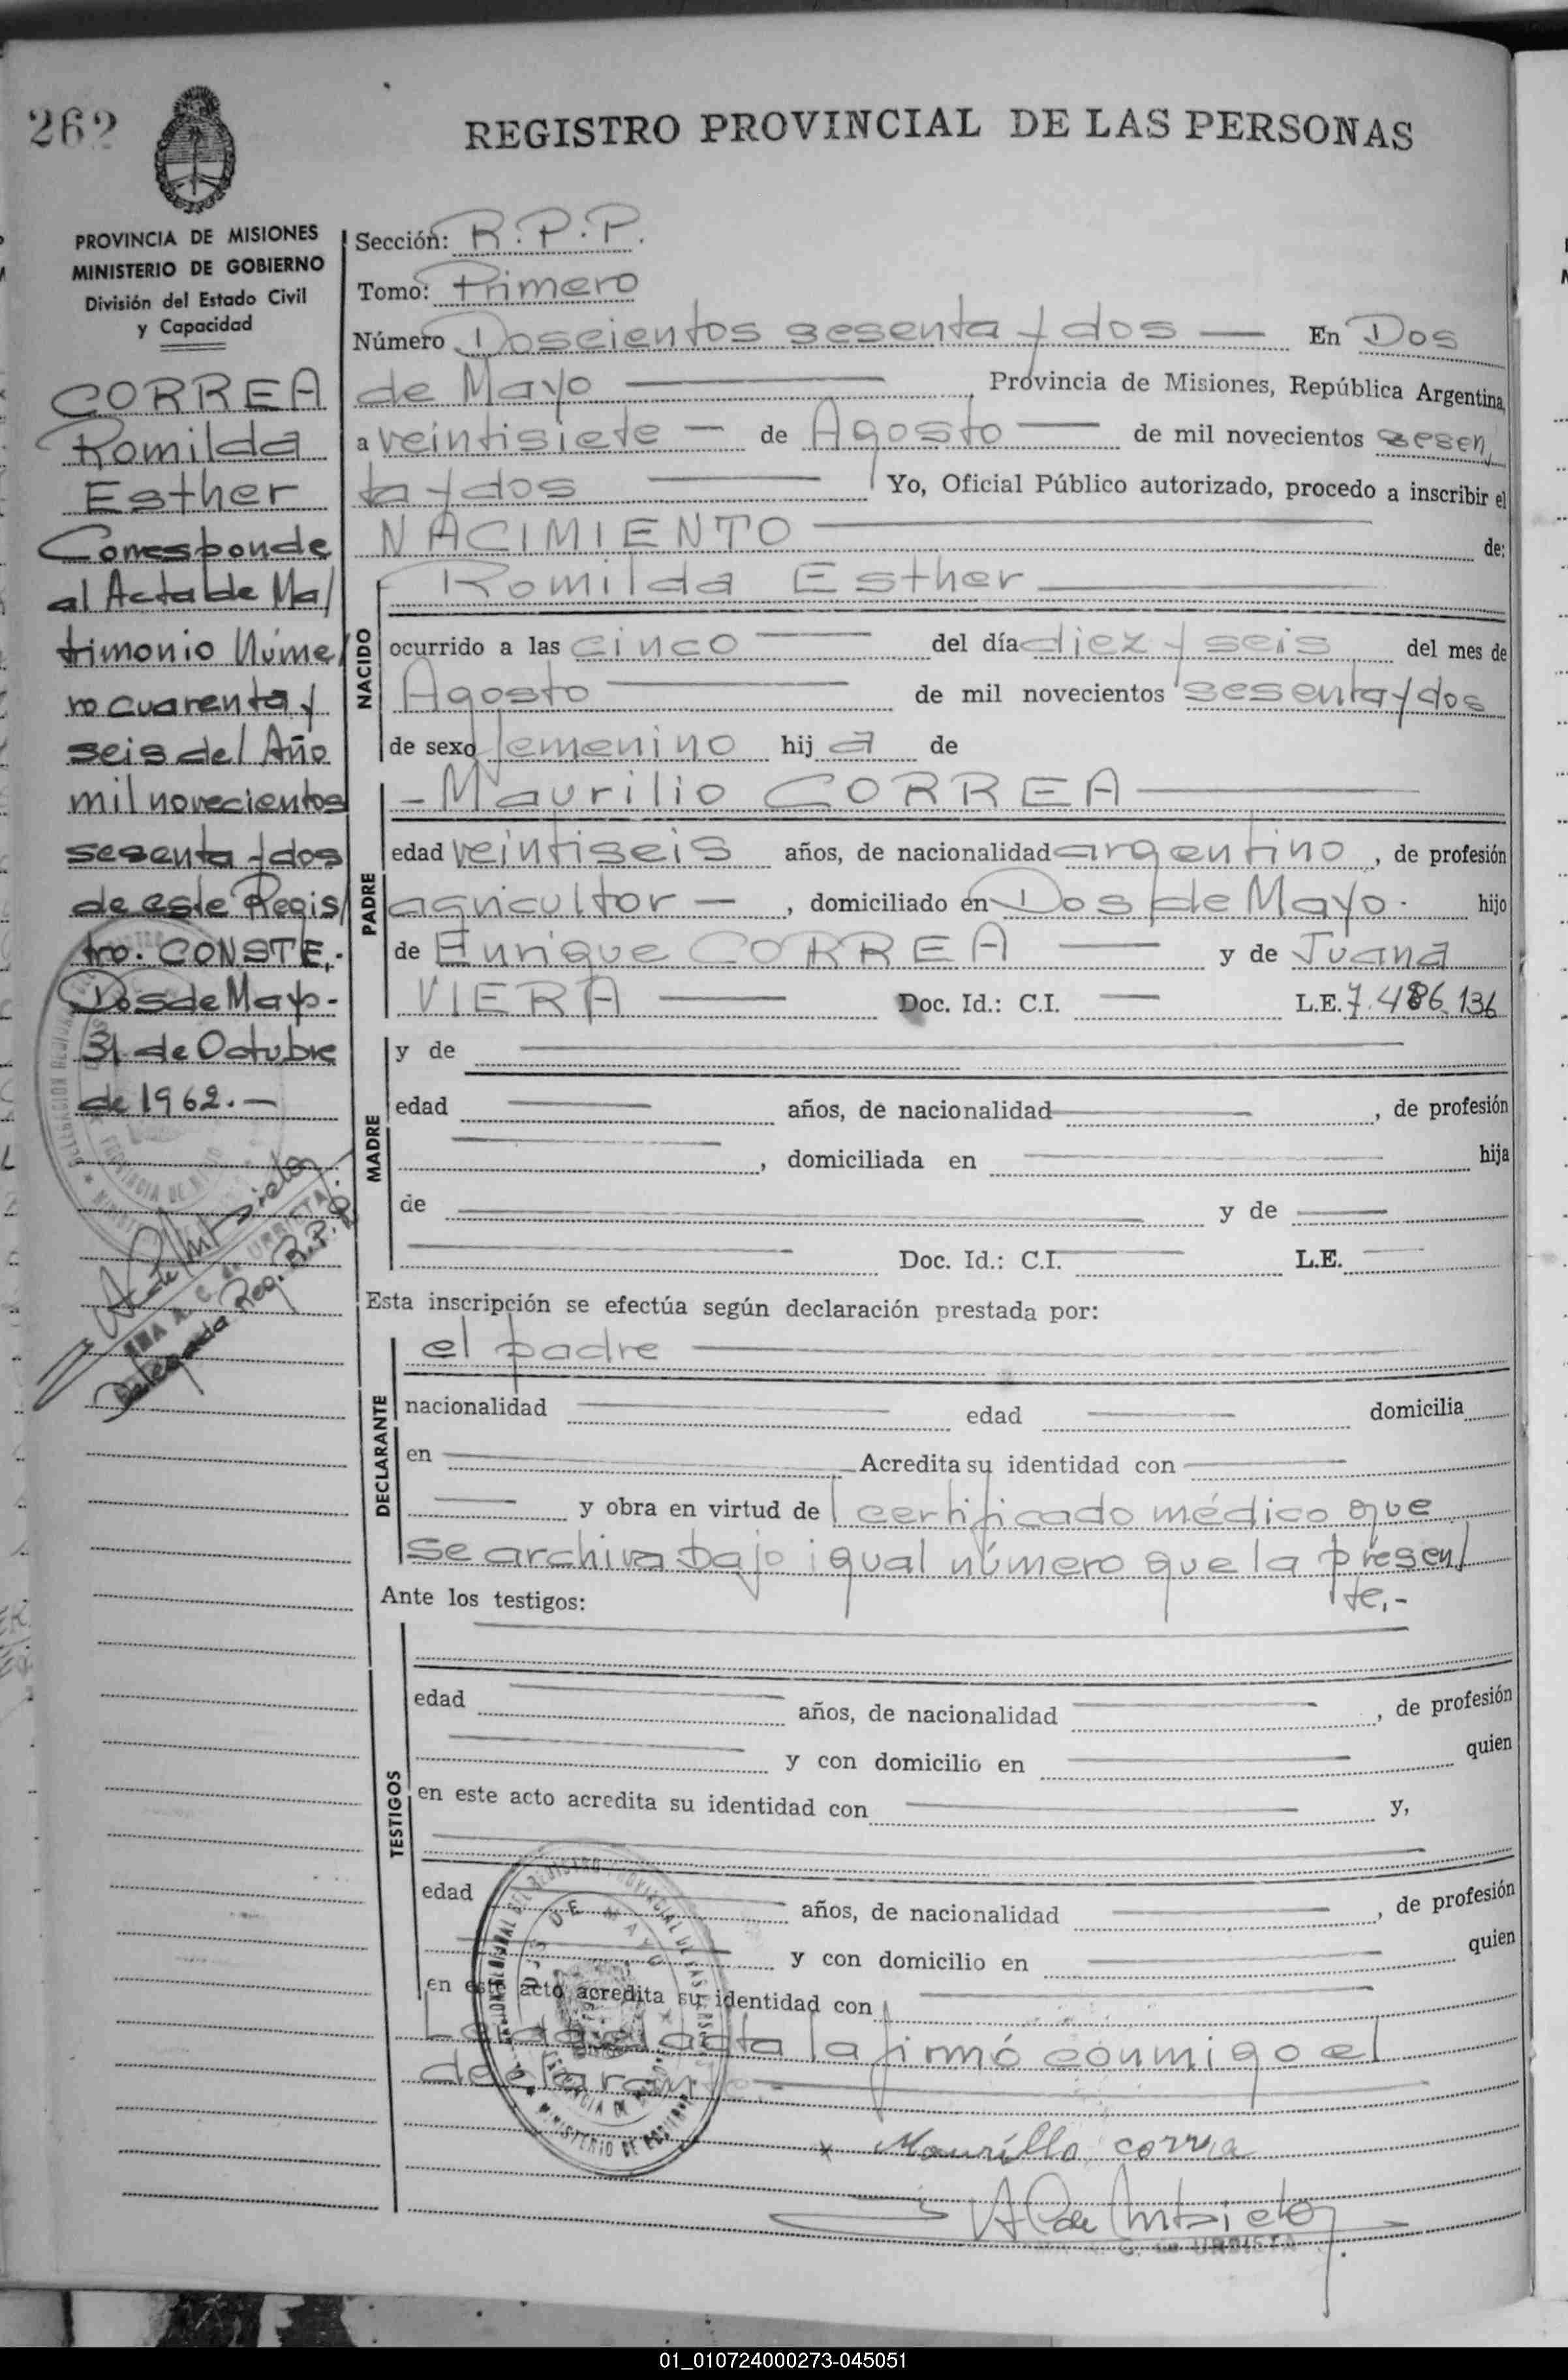 262
REGISTRO PROVINCIAL DE LAS PERSONAS
PROVINCIA DE MISIONES
MINISTERIO DE GOBIERNO
División del Estado Civil
y Capacidad
CORREA
Romilda
Esther
Corresponde
al Acta de Ma/
trimonio Núme/
ro cuarenta y
seis del Año
mil novecientos
sesenta y dos
de este Regis/
tro. CONSTE.-
Dos de Mayo-
31 de Octubre
de 1962.-
Delegada Reg. R.P.P.
Sección: R.P.P.
Tomo: Primero
Número Doscientos sesenta y dos — En Dos
de Mayo — Provincia de Misiones, República Argentina,
a veintisiete — de Agosto — de mil novecientos sesen/
ta y dos — Yo, Oficial Público autorizado, procedo a inscribir el
NACIMIENTO — de:
NACIDO
Romilda Esther —
ocurrido a las cinco — del día diez y seis del mes de
Agosto — de mil novecientos sesenta y dos
de sexo femenino hija de
PADRE
- Maurilio CORREA —
edad veintiseis años, de nacionalidad argentino, de profesión
agricultor —, domiciliado en Dos de Mayo. hijo
de Enrique CORREA — y de Juana
VIERA — Doc. Id.: C.I. — L.E. 7.486.136
MADRE
y de —
edad — años, de nacionalidad —, de profesión
—, domiciliada en — hija
de — y de —
— Doc. Id.: C.I. — L.E. —
Esta inscripción se efectúa según declaración prestada por:
DECLARANTE
el padre —
nacionalidad — edad — domicilia
en — Acredita su identidad con —
— y obra en virtud del certificado médico que
se archiva bajo igual número que la presen/
te.-
Ante los testigos:
TESTIGOS
edad — años, de nacionalidad —, de profesión
— y con domicilio en — quien
en este acto acredita su identidad con — y,
edad — años, de nacionalidad —, de profesión
— y con domicilio en — quien
en este acto acredita su identidad con —
Leída el acta la firmó conmigo el
declarante. —
x Maurillo correa
A C de Urbieta
A. C. de URBIETA
01_010724000273-045051